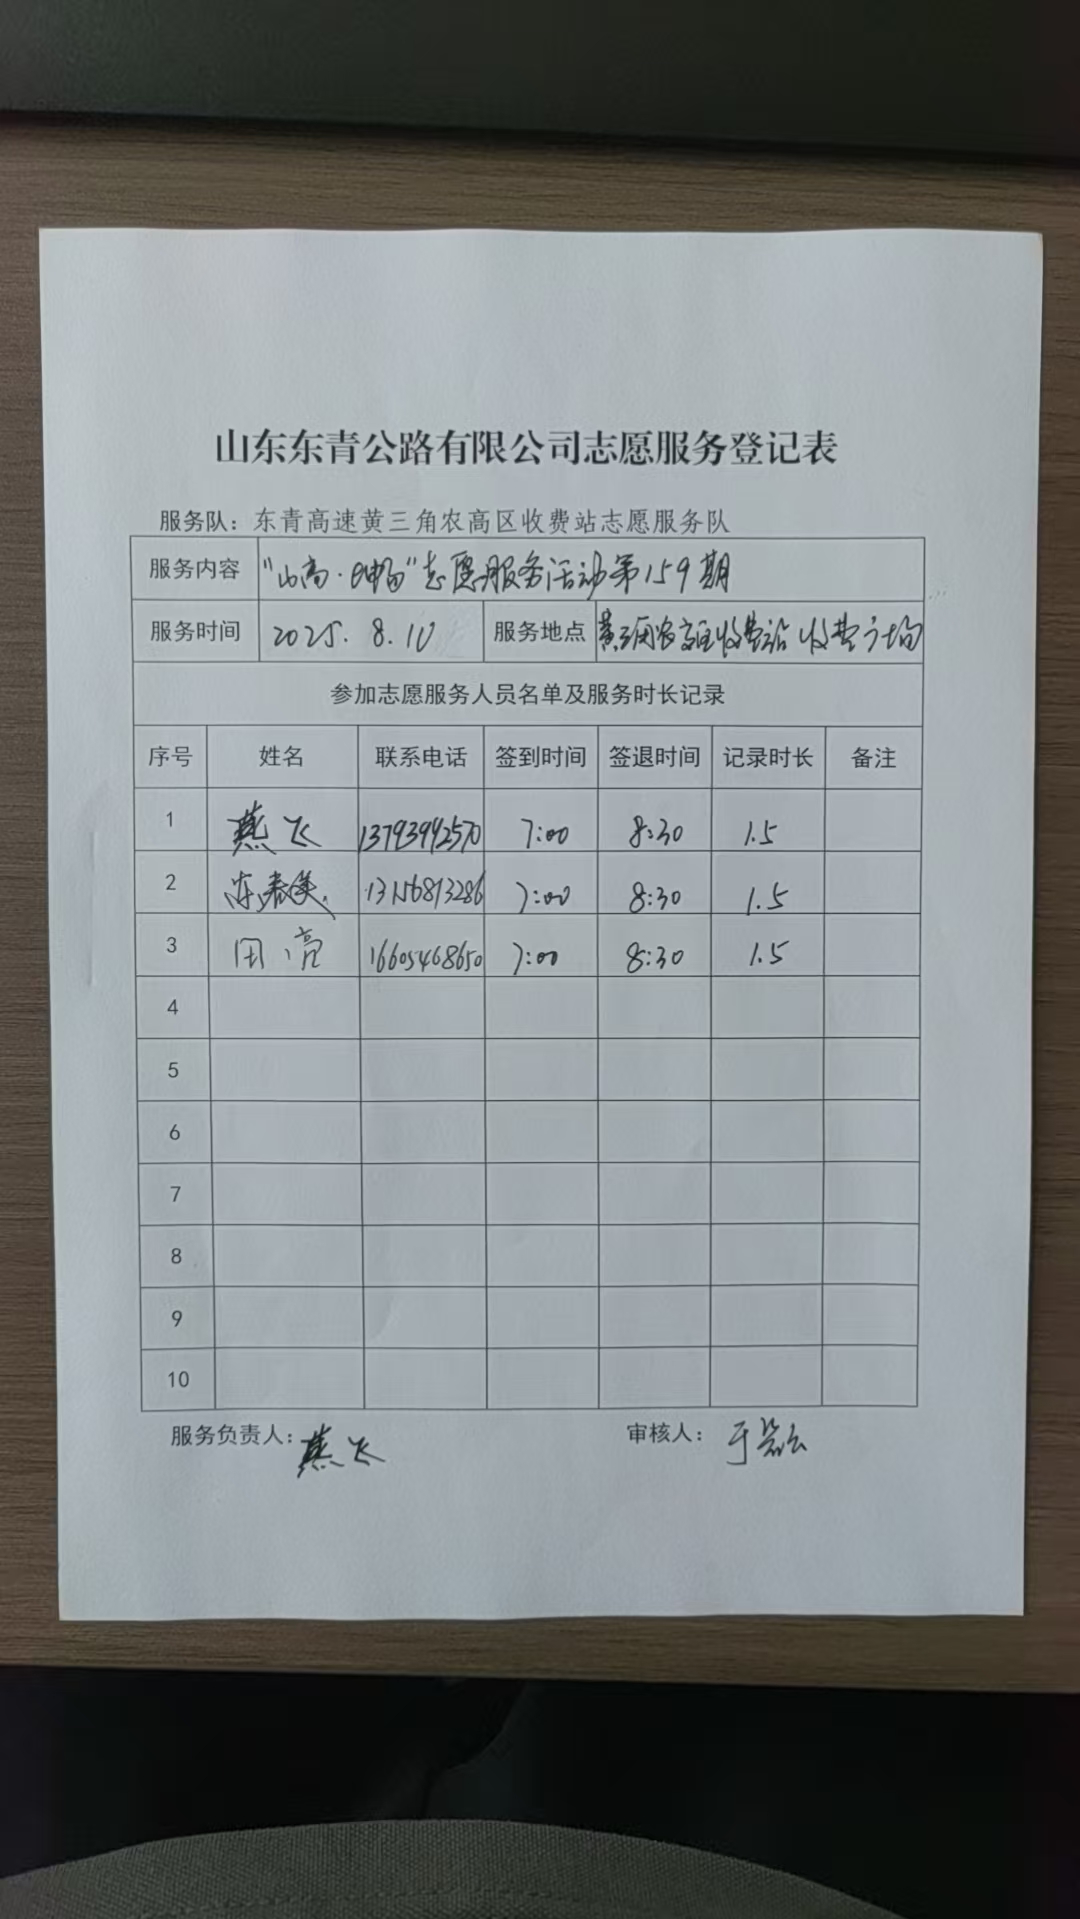 山东东青公路有限公司志愿服务登记表
服务队：东青高速黄三角农高区收费站志愿服务队
服务内容 "山高·畅"志愿服务活动第159期
服务时间 2025.8.10 服务地点 黄三角农高区收费站 收费广场
参加志愿服务人员名单及服务时长记录
序号 姓名 联系电话 签到时间 签退时间 记录时长 备注
1 燕飞 137939942570 7:00 8:30 1.5
2 7:00 8:30 1.5
3 田亮 16605468650 7:00 8:30 1.5
4
5
6
7
8
9
10
服务负责人：燕飞 审核人：于